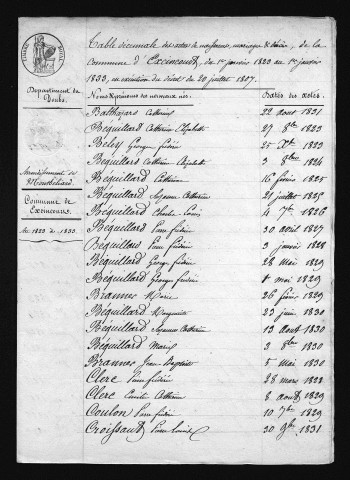 Table décennale des actes de naissances, mariages & décès, de la
Commune d'Exincourt, du 1er janvier 1823 au 1er janvier
1833, en exécution du décret du 20 juillet 1807.
Département du
Doubs.
Arrondissement de
Montbéliard
Commune de
Exincourt.
de 1823 à 1833.
Noms & prénoms des nommés nés. Dates des actes.
Balthazars Catherine 22 aout 1831
Béguillard Catherine Elizabeth 27 8bre 1823
Beley George frédéric 25 7bre 1823
Béguillard Catherine Elizabeth 3 9bre 1824
Béguillard Catherine 16 février 1825
Béguillard Suzanne Catherine 21 juillet 1825
Béguillard Charles Louis 4 7bre 1826
Béguillard Pierre frédéric 30 avril 1827
Béguillard Pierre frédéric 3 janvier 1828
Béguillard George frédéric 28 mai 1829
Béguillard George frédéric 8 mai 1829
Brannes Marie 26 février 1829
Béguillard Marguerite 23 juin 1830
Béguillard Suzanne Catherine 13 aout 1830
Béguillard Marie 3 8bre 1830
Brannes Jean Baptiste 5 mai 1830
Clerc Pierre frédéric 28 mars 1823
Clerc Emilie Catherine 8 aout 1829
Coulon Pierre frédéric 10 7bre 1829
Croissant Pierre Louis 30 9bre 1831